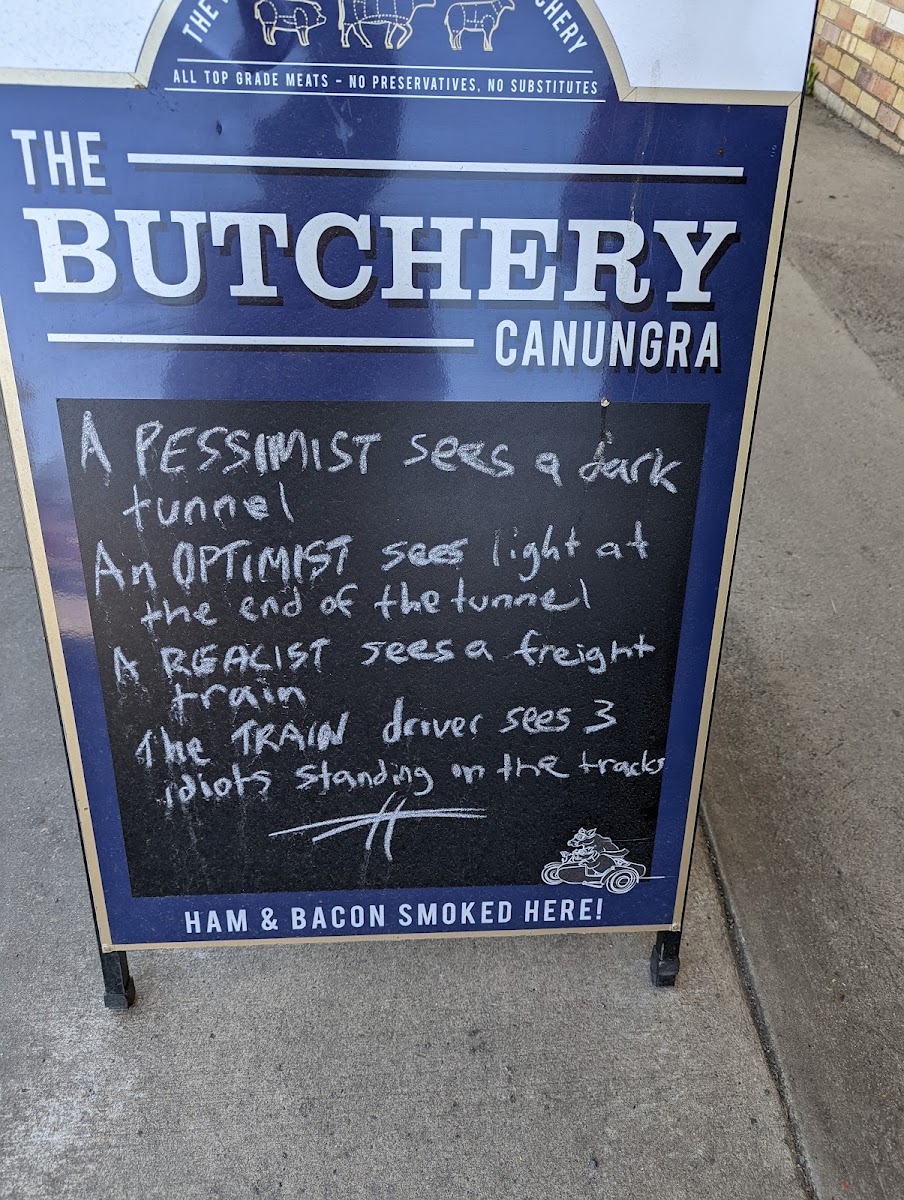 THE
CHERY
ALL TOP GRADE MEATS - NO PRESERVATIVES, NO SUBSTITUTES
THE
BUTCHERY
CANUNGRA
A PESSIMIST sees a dark
tunnel
An OPTIMIST sees light at
the end of the tunnel
A REALIST sees a freight
train
The TRAIN driver sees 3
idiots standing on the tracks
HAM & BACON SMOKED HERE!